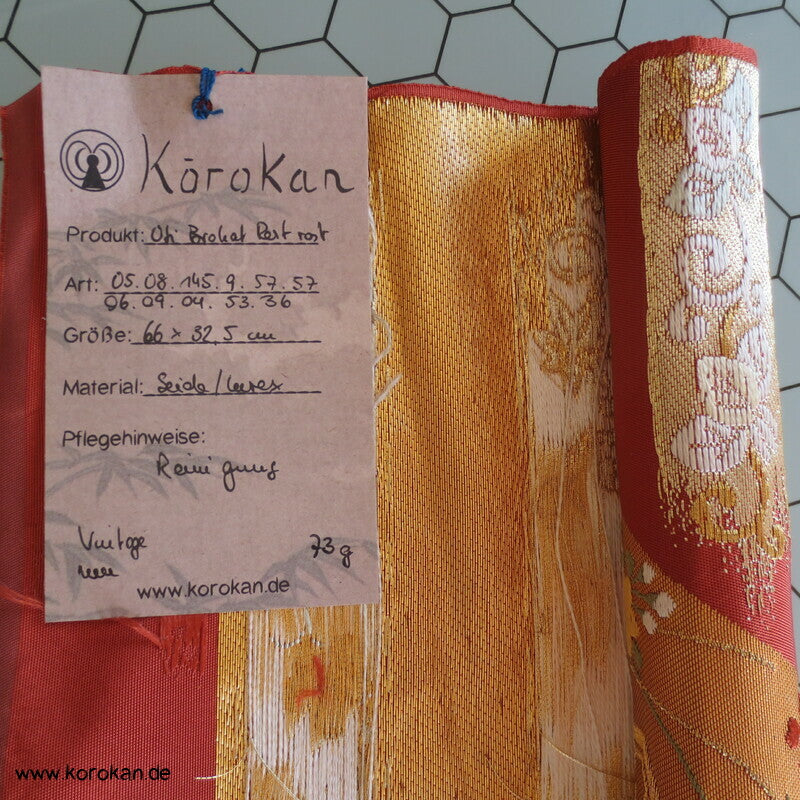 Kōrokan
Produkt: Obi Brokat Rest rot
Art: 05.08.145.9.57.57
06.09.04.53.36
Größe: 66 x 32,5 cm
Material: Seide/Lurex
Pflegehinweise:
Reinigung
Vintage
neu
73 g
www.korokan.de
www.korokan.de